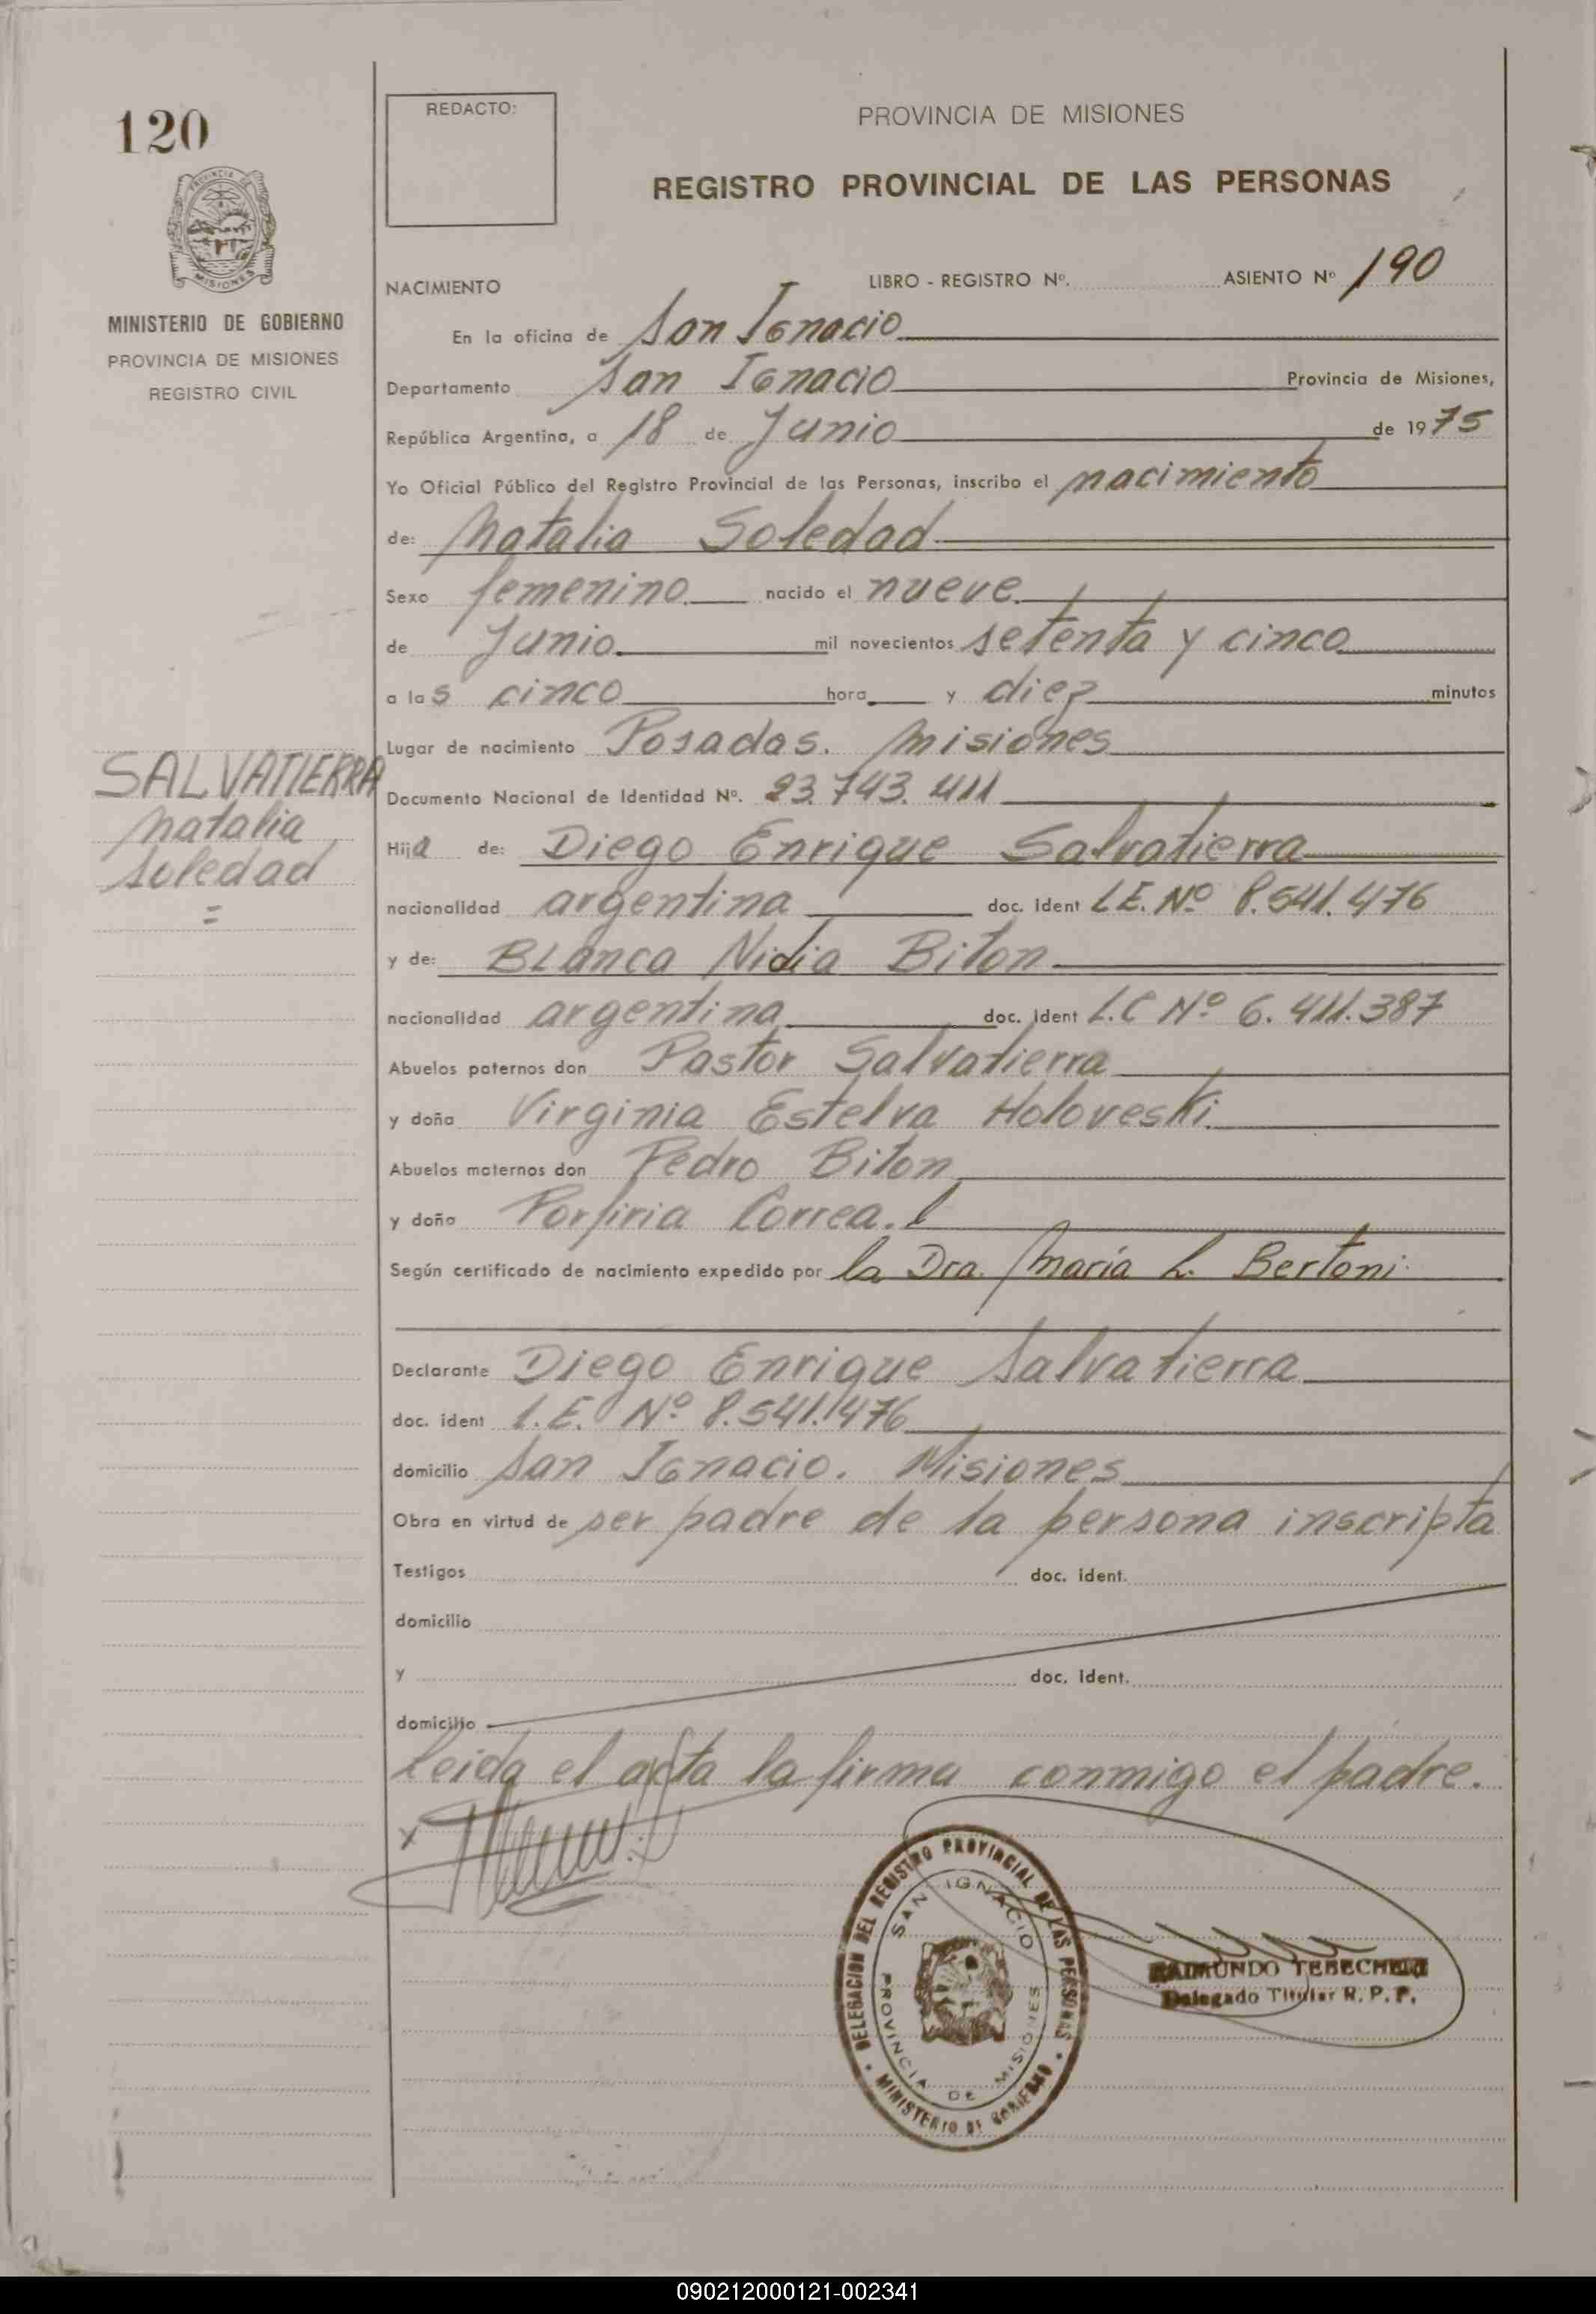 120
REDACTO:
PROVINCIA DE MISIONES
REGISTRO PROVINCIAL DE LAS PERSONAS
PROVINCIA DE
MISIONES
MINISTERIO DE GOBIERNO
PROVINCIA DE MISIONES
REGISTRO CIVIL
NACIMIENTO LIBRO - REGISTRO Nº. ASIENTO Nº 190
En la oficina de San Ignacio
Departamento San Ignacio Provincia de Misiones,
República Argentina, a 18 de Junio de 1975
Yo Oficial Público del Registro Provincial de las Personas, inscribo el nacimiento
de: Natalia Soledad
Sexo femenino nacido el nueve
de Junio mil novecientos setenta y cinco
a las cinco hora y diez minutos
Lugar de nacimiento Posadas. Misiones
SALVATIERRA
Natalia
Soledad
Documento Nacional de Identidad Nº. 23.743.411
Hija de: Diego Enrique Salvatierra
nacionalidad argentina doc. ident L.E. Nº 8.541.476
y de: Blanca Nidia Biton
nacionalidad argentina doc. ident L.C Nº 6.411.387
Abuelos paternos don Pastor Salvatierra
y doña Virginia Estelva Holoveski
Abuelos maternos don Pedro Biton
y doña Porfiria Correa.
Según certificado de nacimiento expedido por la Dra. María L. Bertoni
Declarante Diego Enrique Salvatierra
doc. ident L.E. Nº 8.541.476
domicilio San Ignacio. Misiones
Obra en virtud de ser padre de la persona inscripta
Testigos doc. ident.
domicilio
y doc. ident.
domicilio
Leida el acta la firma conmigo el padre.
x
DELEGACION DEL REGISTRO PROVINCIAL DE LAS PERSONAS
SAN IGNACIO
PROVINCIA DE MISIONES
MINISTERIO DE GOBIERNO
RAIMUNDO
Delegado Titular R. P. P.
090212000121-002341